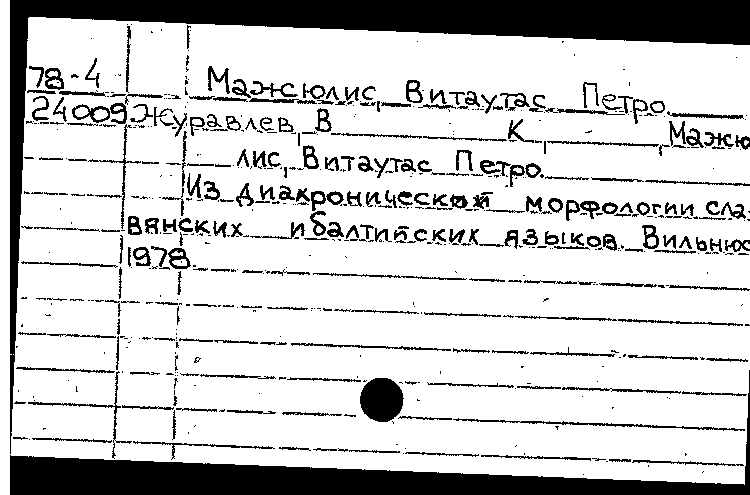 78-4 Мажюлис, Витаутас Петро
24009 Журавлев, В К , Мажю
лис, Витаутас Петро
Из диахронической морфологии сла-
вянских и балтийских языков. Вильнюс
1978